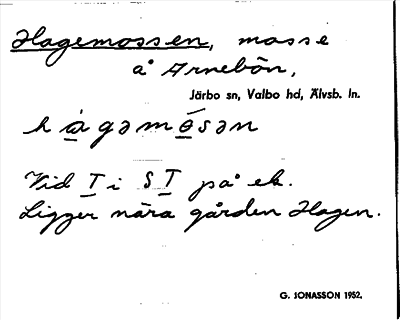 Hagemossen, mosse
å Arnebön,
Järbo sn, Valbo hd, Älvsb. ln.
hàgəmósən
Vid T i ST på ek.
Ligger nära gården Hagen.
G. JONASSON 1952.